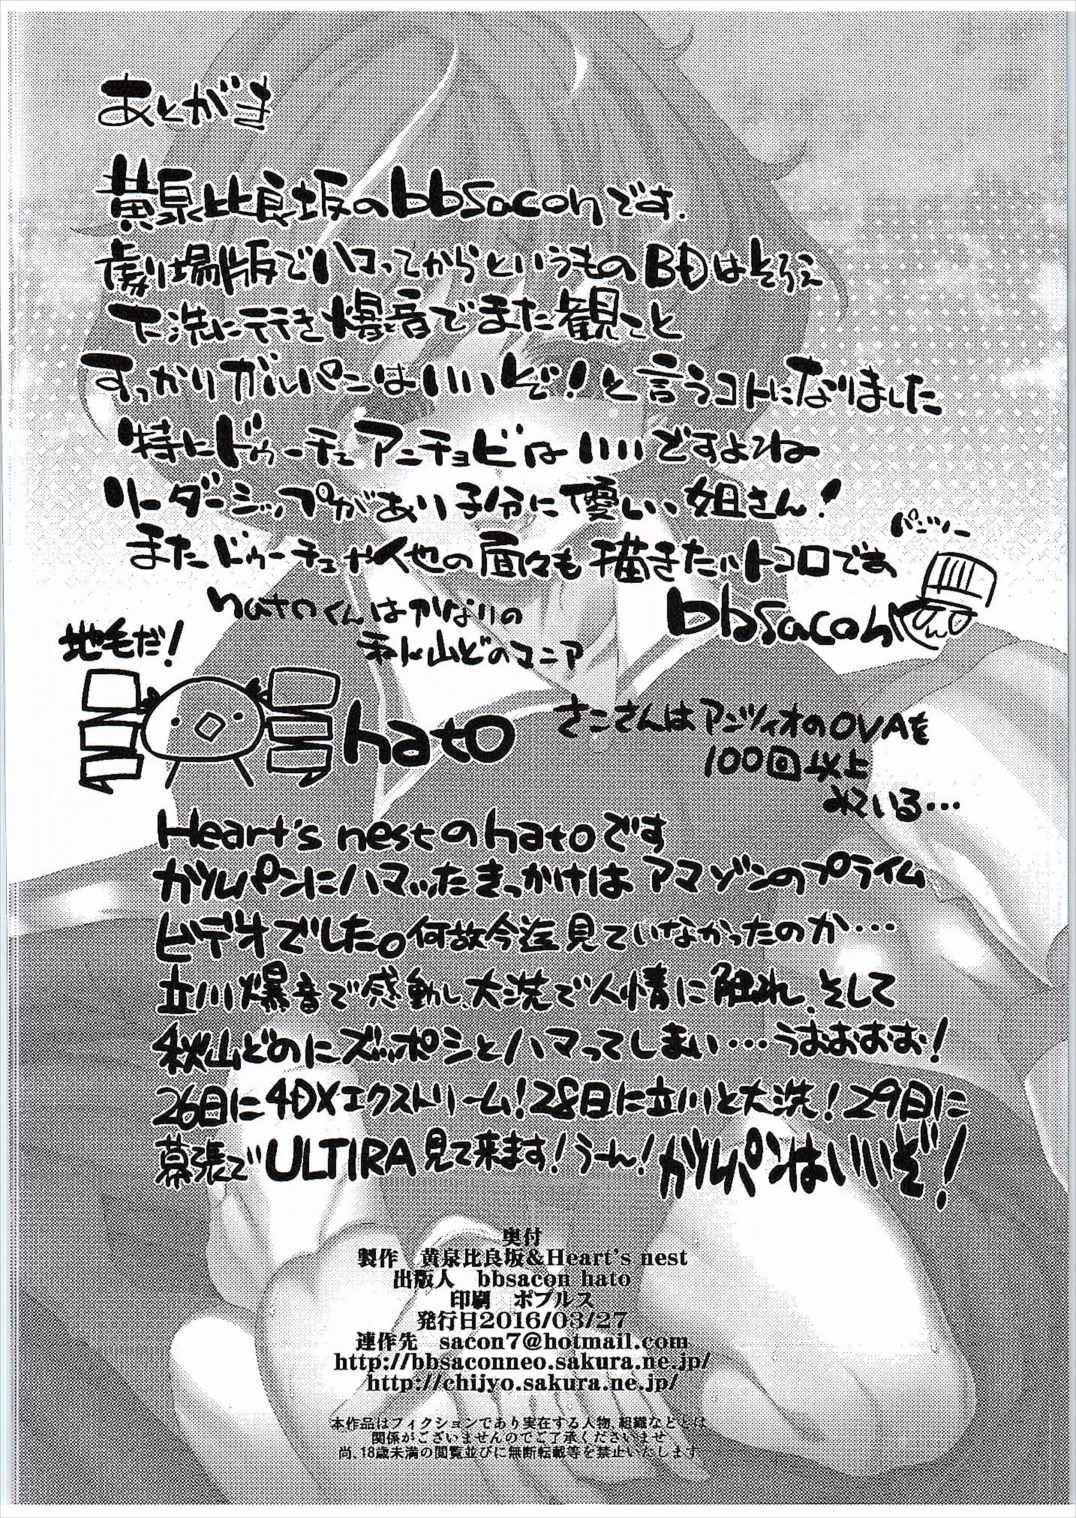 あとがき
黄泉比良坂のbbsaconです.
劇場版でハコってからというものBDはそろえ
大洗に行き爆音でまた観ること
すっかりガルパンはいいぞ!と言うコトになりました
特にドゥーチェアンチョビはいいですよね
リーダーシップがあり子分に優しい、姐さん!
またドゥーチェや他の面々も描きたいトコロです
パンツァー
bbsacon
hatoくんはかなりの
秋山どのマニア
地毛だ!
hato
さこさんはアンツィオのOVAを
100回以上
みている…
Heart's nestのhatoです
ガルパンにハマッたきっかけはアマゾンのプライム
ビデオでした。何故今迄見ていなかったのか…
立川爆音で感動し、大洗で人情に触れ、そして
秋山どのにズッポシとハマってしまい…うおおおお!
26日に4DXエクストリーム!28日に立川と大洗!29日に
幕張でULTIRA見て来ます!うーん!ガルパンはいいぞ!
奥付
製作 黄泉比良坂&Heart's nest
出版人 bbsacon hato
印刷 ポプルス
発行日2016/03/27
連作先 sacon7@hotmail.com
http://bbsaconneo.sakura.ne.jp/
http://chijyo.sakura.ne.jp/
本作品はフィクションであり実在する人物、組織などとは
関係がございませんのでご了承くださいませ
尚、18歳未満の閲覧並びに無断転載等を禁止いたします